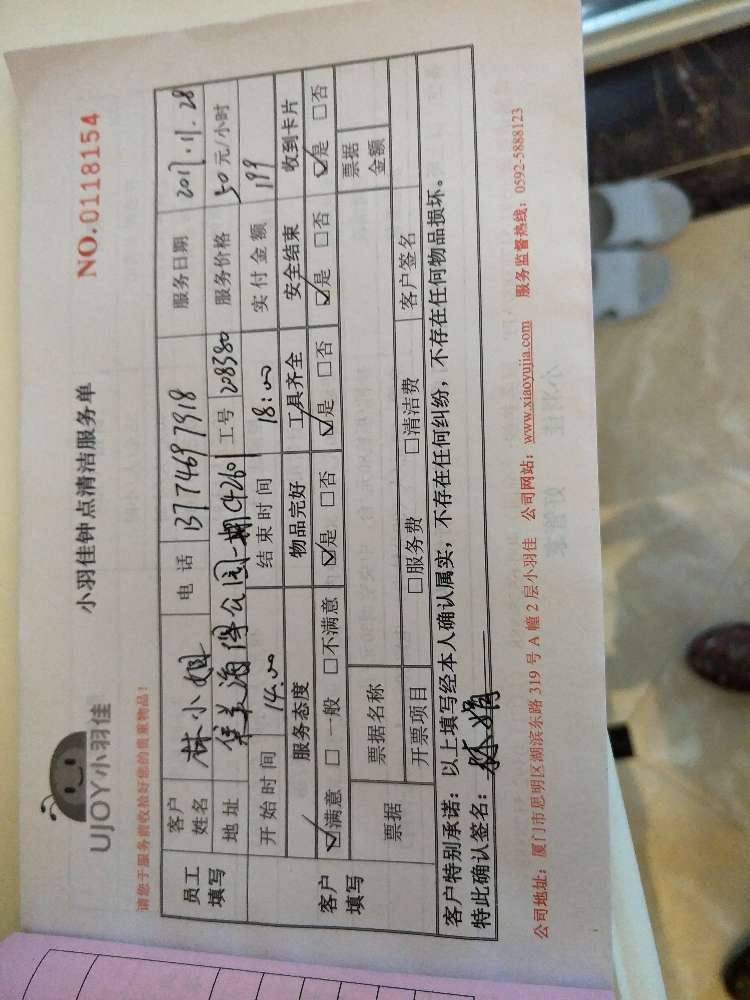 UJOY小羽佳
小羽佳钟点清洁服务单
NO.0118154
请您于服务前收拾好您的贵重物品！
员工填写
客户姓名 林小姐 电话 13774697918 服务日期 2017.11.28
地址 集美海傳公园一期C4260 工号 208380 服务价格 50元/小时
开始时间 14:00 结束时间 18:00 实付金额 199
客户填写
服务态度 物品完好 工具齐全 安全结束 收到卡片
☑满意 □一般 □不满意 ☑是 □否 ☑是 □否 ☑是 □否 ☑是 □否
票据 票据名称 票据金额
开票项目 □服务费 □清洁费 客户签名
客户特别承诺：以上填写经本人确认属实，不存在任何纠纷，不存在任何物品损坏。
特此确认签名：林娟
公司地址：厦门市思明区湖滨东路 319 号 A 幢 2 层小羽佳 公司网站：www.xiaoyujia.com 服务监督热线：0592-5888123